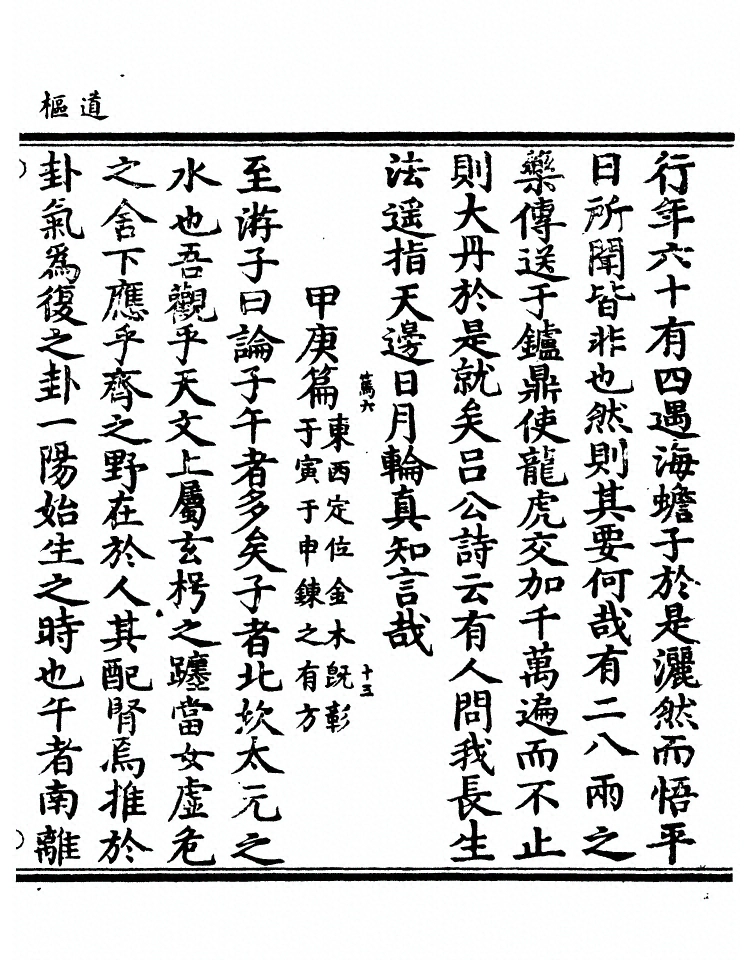 道樞
行年六十有四遇海蟾子於是灑然而悟平
日所聞皆非也然則其要何哉有二八兩之
藥傳送于鑪鼎使龍虎交加千萬遍而不止
則大丹於是就矣吕公詩云有人問我長生
法遥指天邊日月輪真知言哉
篤六
十三
甲庚篇
東西定位金木既彰
于寅于申鍊之有方
至游子曰論子午者多矣子者北坎太元之
水也吾觀乎天文上屬玄枵之躔當女虚危
之舍下應乎齊之野在於人其配腎焉推於
卦氣爲復之卦一陽始生之時也午者南離